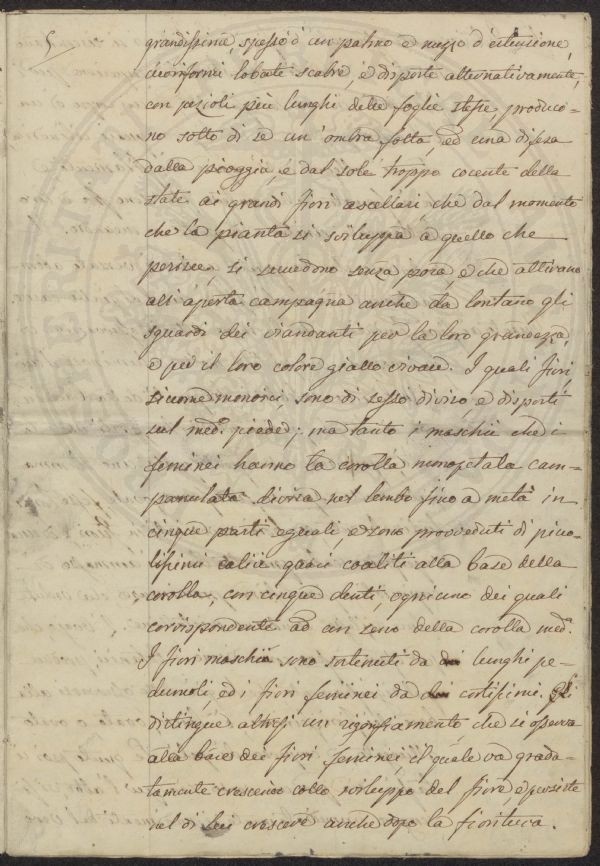 5
grandissime, spesso d'un palmo e mezzo d'estensione,
cuoriformi lobate scabre, e disposte alternativamente,
con pezioli più lunghi delle foglie stesse, produco=
no sotto di se un'ombra folta, ed una difesa
dalla pioggia, e dal sole troppo cocente della
state ai grandi fiori ascellari, che dal momento
che la pianta si sviluppa a quello che
perisce, si succedono senza posa, e che attirano
all'aperta campagna anche da lontano gli
sguardi dei viandanti per la loro grandezza,
e per il loro colore giallo vivace. I quali fiori,
siccome monoici, sono di sesso diviso, e disposti
sul med.º piede; ma tanto i maschii che i
feminei hanno la corolla monopetala cam=
panulata divisa nel lembo fino a metà in
cinque parti eguali, e sono provveduti di picco=
lissimi calici quasi coaliti alla base della
corolla, con cinque denti, ognuno dei quali
corrispondente ad un seno della corolla med.ª
I fiori maschii sono sostenuti da lunghi pe=
duncoli, ed i fiori feminei da cortissimi. Gli
distingue altresì un rigonfiamento che si osserva
alla base dei fiori feminei, il quale va grada=
tamente crescendo collo sviluppo del fiore e persiste
nel di crescere anche dopo la fioritura.